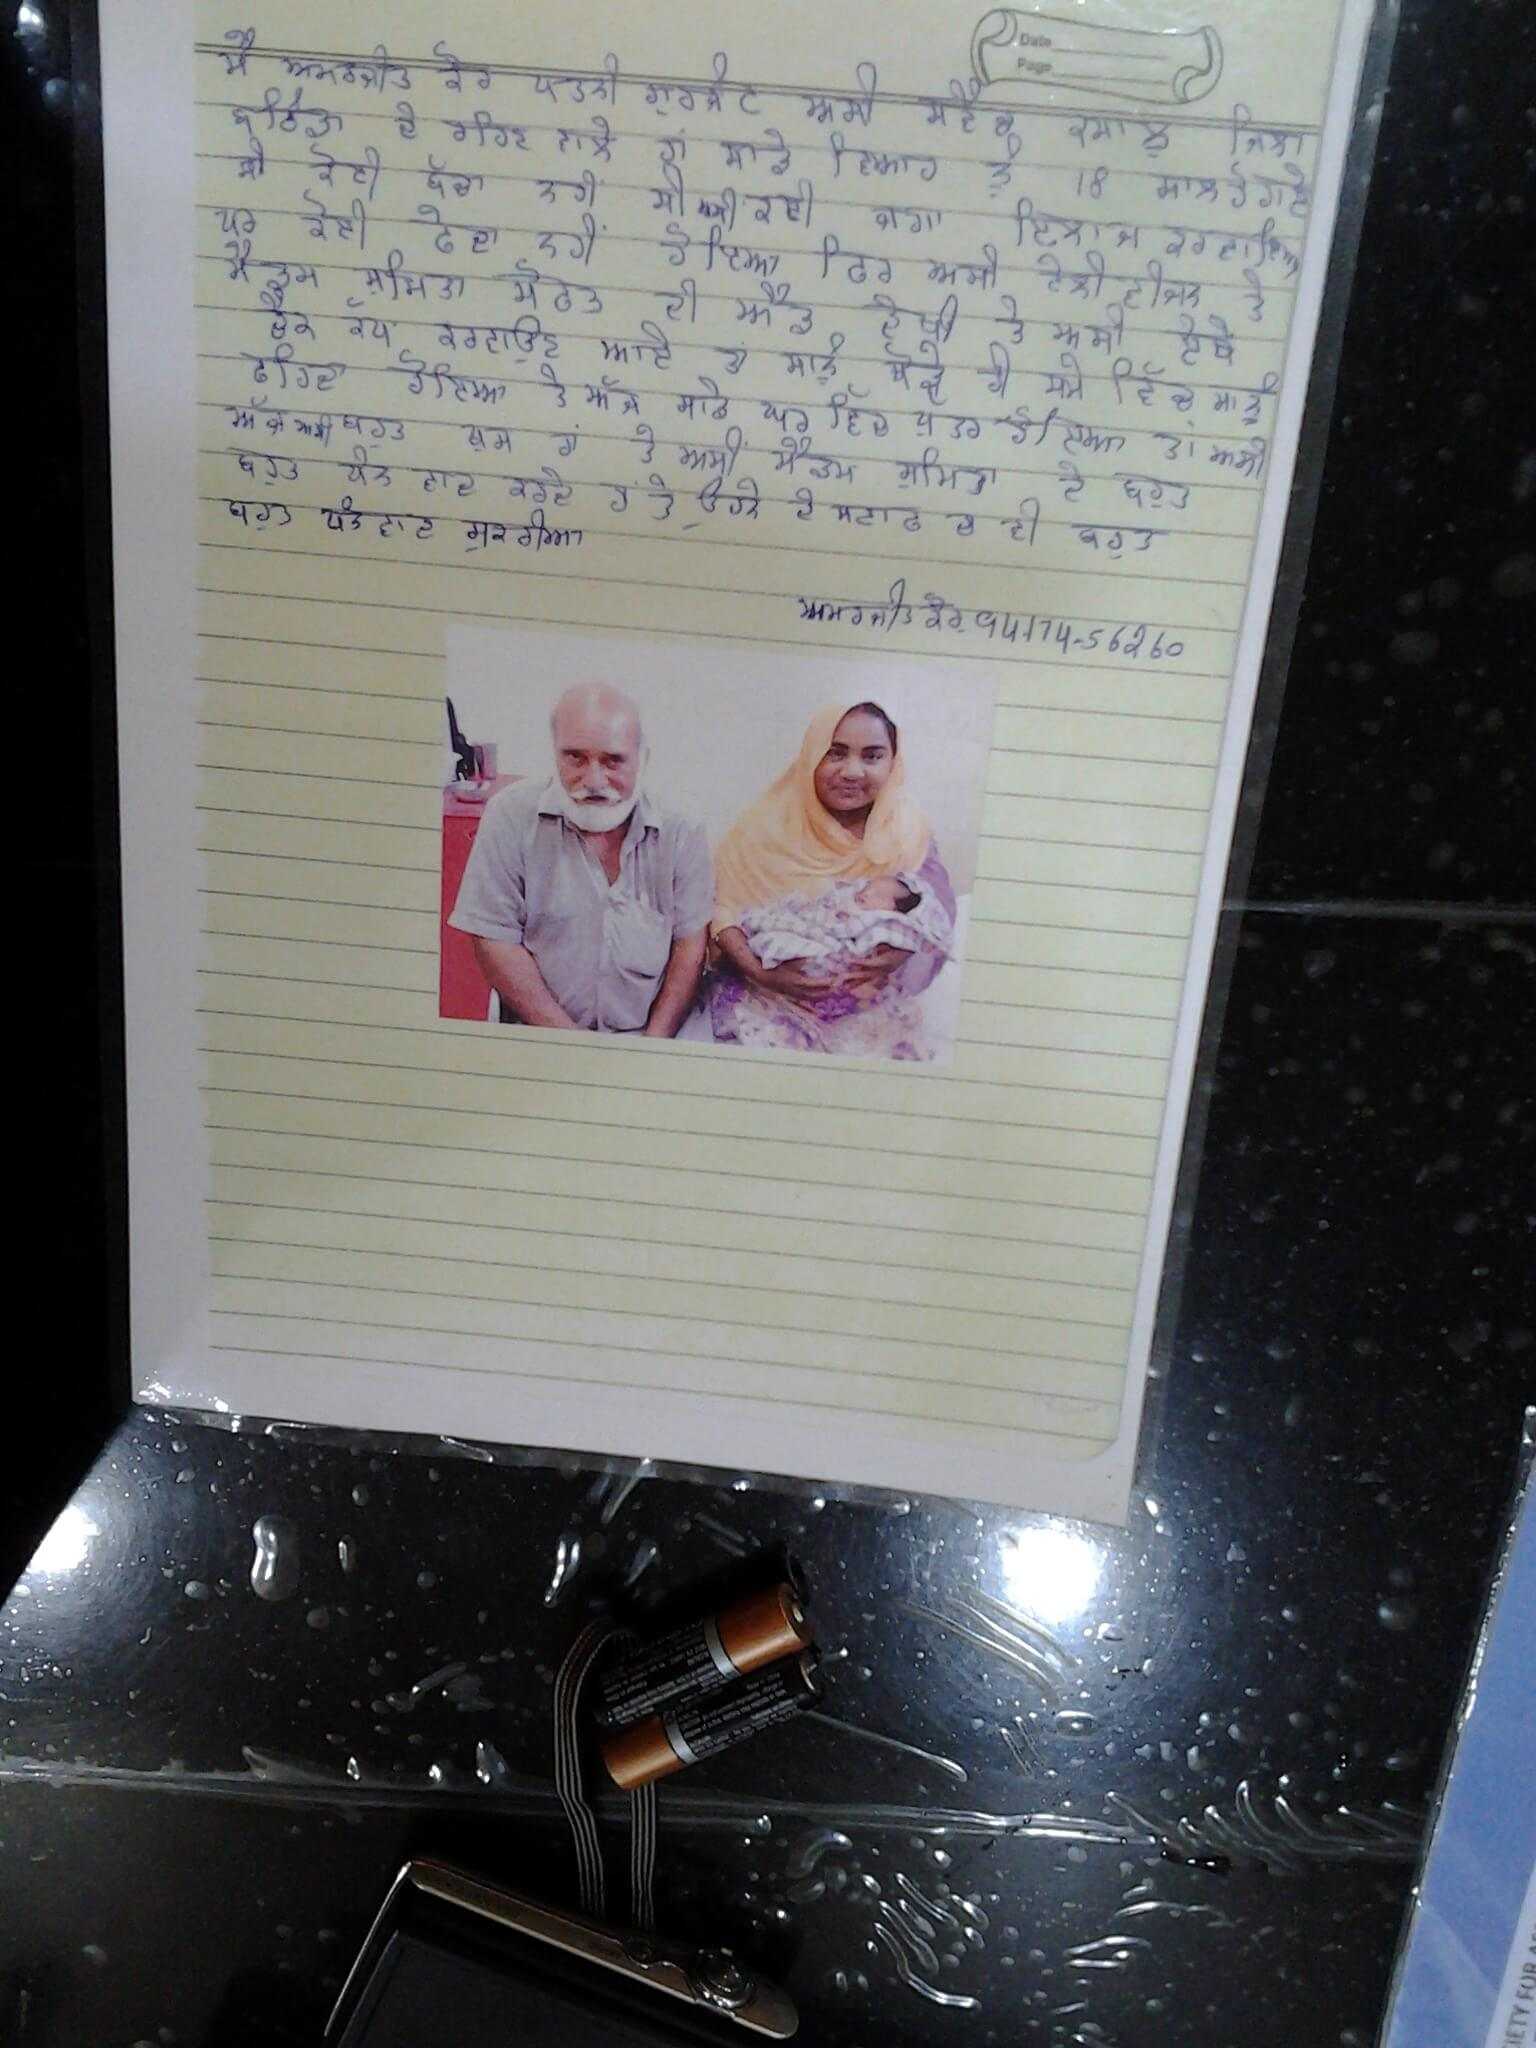 Date
Page
ਮੈਂ ਅਮਰਜੀਤ ਕੌਰ ਪਤਨੀ ਗੁਰਜੰਟ ਅਸੀ ਜਿਲਾ
ਬਠਿੰਡਾ ਦੇ ਰਹਿਣ ਵਾਲੇ ਹਾਂ ਸਾਡੇ ਵਿਆਹ ਨੂੰ 18 ਸਾਲ ਹੋ ਗਏ
ਸੀ ਕੋਈ ਬੱਚਾ ਨਹੀਂ ਸੀ ਅਸੀ ਕਈ ਜਗਾ ਇਲਾਜ ਕਰਵਾਇਆ
ਪਰ ਕੋਈ ਫੇਦਾ ਨਹੀਂ ਹੋਇਆ ਫਿਰ ਅਸੀ ਟੇਲੀਵੀਜਨ ਤੇ
ਮੈਡਮ ਸੁਮਿਤਾ ਸੋਫਤ ਦੀ ਐਡ ਦੇਖੀ ਤੇ ਅਸੀ ਏਥੇ
ਚੈਕ ਕੱਪ ਕਰਵਾਉਣ ਆਏ ਤਾਂ ਸਾਨੂੰ ਥੋੜੇ ਹੀ ਸਮੇ ਵਿੱਚ ਸਾਨੂੰ
ਫਾਇਦਾ ਹੋਇਆ ਤੇ ਅੱਜ ਸਾਡੇ ਘਰ ਵਿੱਚ ਪੁਤਰ ਹੋਇਆ ਤਾਂ ਅਸੀ
ਅੱਜ ਅਸੀ ਬਹੁਤ ਖੁਸ ਹਾਂ ਤੇ ਅਸੀਂ ਮੈਡਮ ਸੁਮਿਤਾ ਦੇ ਬਹੁਤ
ਬਹੁਤ ਧੰਨਵਾਦ ਕਰਦੇ ਹਾਂ ਤੇ ਉਹਨੇ ਦੇ ਸਟਾਫ ਦਾ ਵੀ ਬਹੁਤ
ਬਹੁਤ ਧੰਨਵਾਦ ਸ਼ੁਕਰੀਆ
ਅਮਰਜੀਤ ਕੌਰ 94174-56260
IETY FOR AS